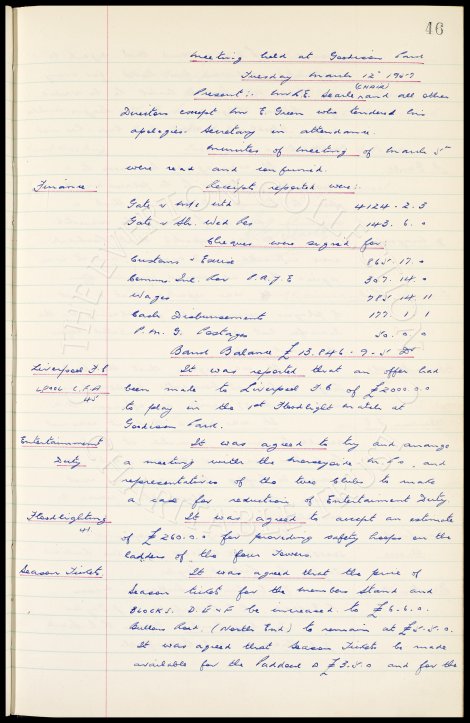 46
Meeting held at Goodison Park
Tuesday March 12th 1957
Present:- Mr R.E. Searle (CHAIR) and all other
Directors except Mr E. Green who tendered his
apologies. Secretary in attendance.
Minutes of meeting of March 5th
were read and confirmed.
Finance: Receipts reported were:-
Gate v Utd 4124. 2. 3
Gate v Wed Res 143. 6. 0
Cheques were signed for:
Customs & Excise 865. 17. 0
Comms. Inl. Rev P.A.Y.E 307. 14. 0
Wages 785. 14. 11
Cash Disbursement 177. 1. 1
P.M.G. Postages 50. 0. 0
Bank Balance £13,846-9-5 Dr
Liverpool F.C. It was reported that an offer had
L'POOL C.F.A been made to Liverpool F.C. of £2000.0.0
45 to play in the 1st Floodlight match at
Goodison Park.
Entertainment It was agreed to try and arrange
Duty a meeting with the Merseyside M.P.s and
representatives of the two Clubs to make
a case for reduction of Entertainment Duty.
Floodlighting It was agreed to accept an estimate
41 of £260.0.0 for providing safety hoops on the
ladders of the four Towers.
Season Tickets It was agreed that the price of
Season tickets for the members Stand and
BLOCKS. D. E & F be increased to £6.6.0.
Bullens Road (North End) to remain at £5.5.0.
It was agreed that Season Tickets be made
available for the Paddock @ £3.5.0 and for the